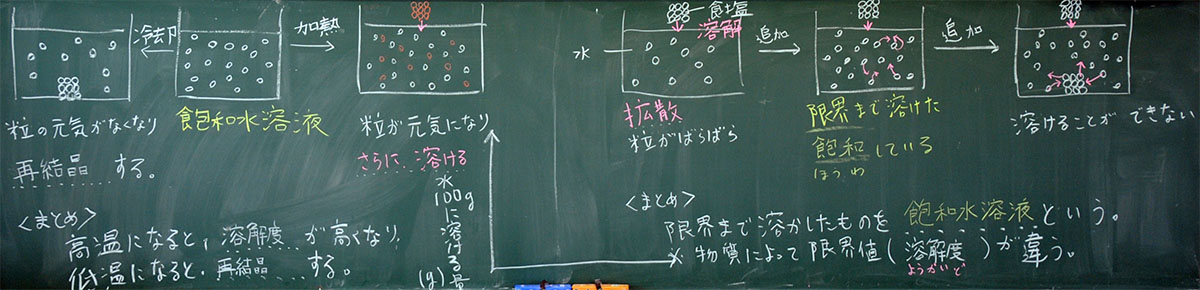 冷却
加熱
粒の元気がなくなり
再結晶 する。
飽和水溶液
粒が元気になり
さらに 溶ける
<まとめ>
高温になると、溶解度 が高くなり、
低温になると、再結晶 する。
水100gに溶ける量(g)
水
食塩
溶解
追加
追加
拡散
粒がばらばら
限界まで溶けた
飽和している
ほうわ
溶けることができない
<まとめ>
限界まで溶かしたものを 飽和水溶液 という。
※ 物質によって限界値(溶解度)が違う。
ようかいど